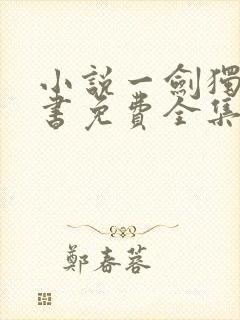 小說一劍獨
書免費全集
鄭春蓉